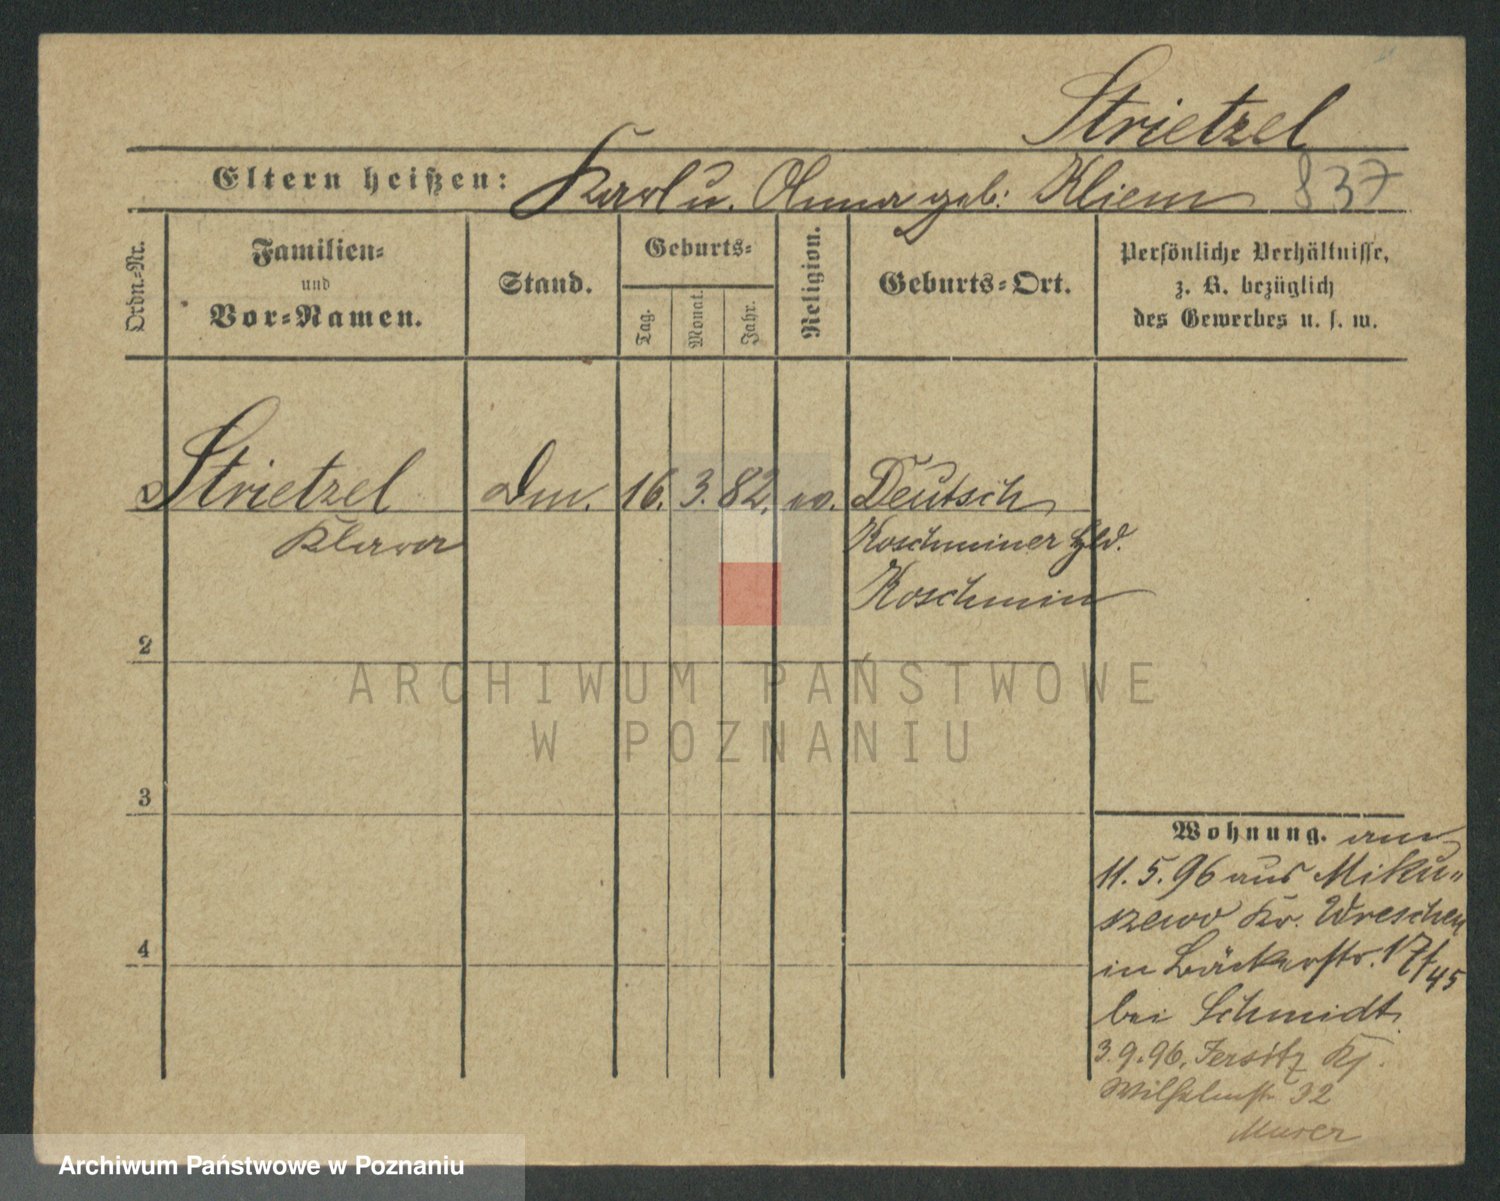 Strietzel
Eltern heißen: Karl u. Anna geb: Kliem 837
Ordn.-Nr.
Familien-
und
Vor-Namen.
Stand.
Geburts-
Tag.
Monat.
Jahr.
Religion.
Geburts-Ort.
Persönliche Verhältnisse,
z. B. bezüglich
des Gewerbes u. s. w.
Strietzel Dm. 16. 3. 82. ev. Deutsch
Klara Koschminer Hld.
Koschmin
2
3
4
Wohnung. am
11. 5. 96 aus Miku-
szewo Kr. Wreschen
in Bäckerstr. 17/45
bei Schmidt
3. 9. 96. Jersitz
Wilhelmstr. 32
ARCHIWUM PAŃSTWOWE
W POZNANIU
Archiwum Państwowe w Poznaniu